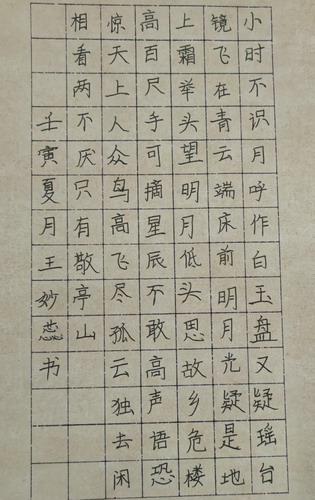 小时不识月呼作白玉盘又疑瑶台
镜飞在青云端床前明月光疑是地
上霜举头望明月低头思故乡危楼
高百尺手可摘星辰不敢高声语恐
惊天上人众鸟高飞尽孤云独去闲
相看两不厌只有敬亭山
壬寅夏月王妙书